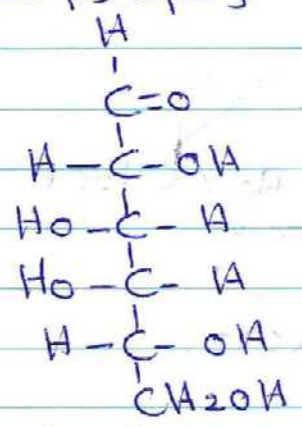 H
C=O
H-C-OH
HO-C-H
HO-C-H
H-C-OH
CH2OH